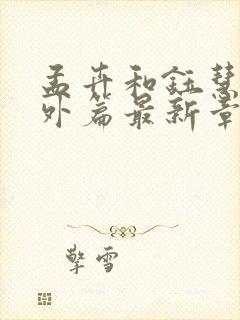 孟卉和钰慧
外篇最新章
擎雪